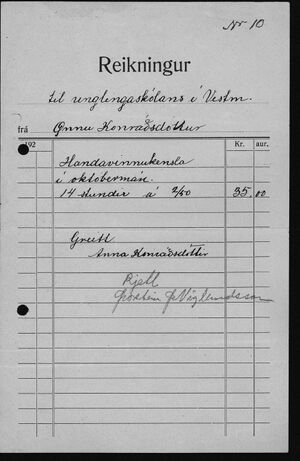 Nr 10
Reikningur
til unglingaskólans í Vestm.
frá Önnu Konráðsdóttur
192 Kr. aur.
Handavinnukensla
í októbermán.
14 stundir á 2/50 35,00
Greitt
Anna Konráðsdóttir
Rjett
Þorsteinn Þ Víglundsson